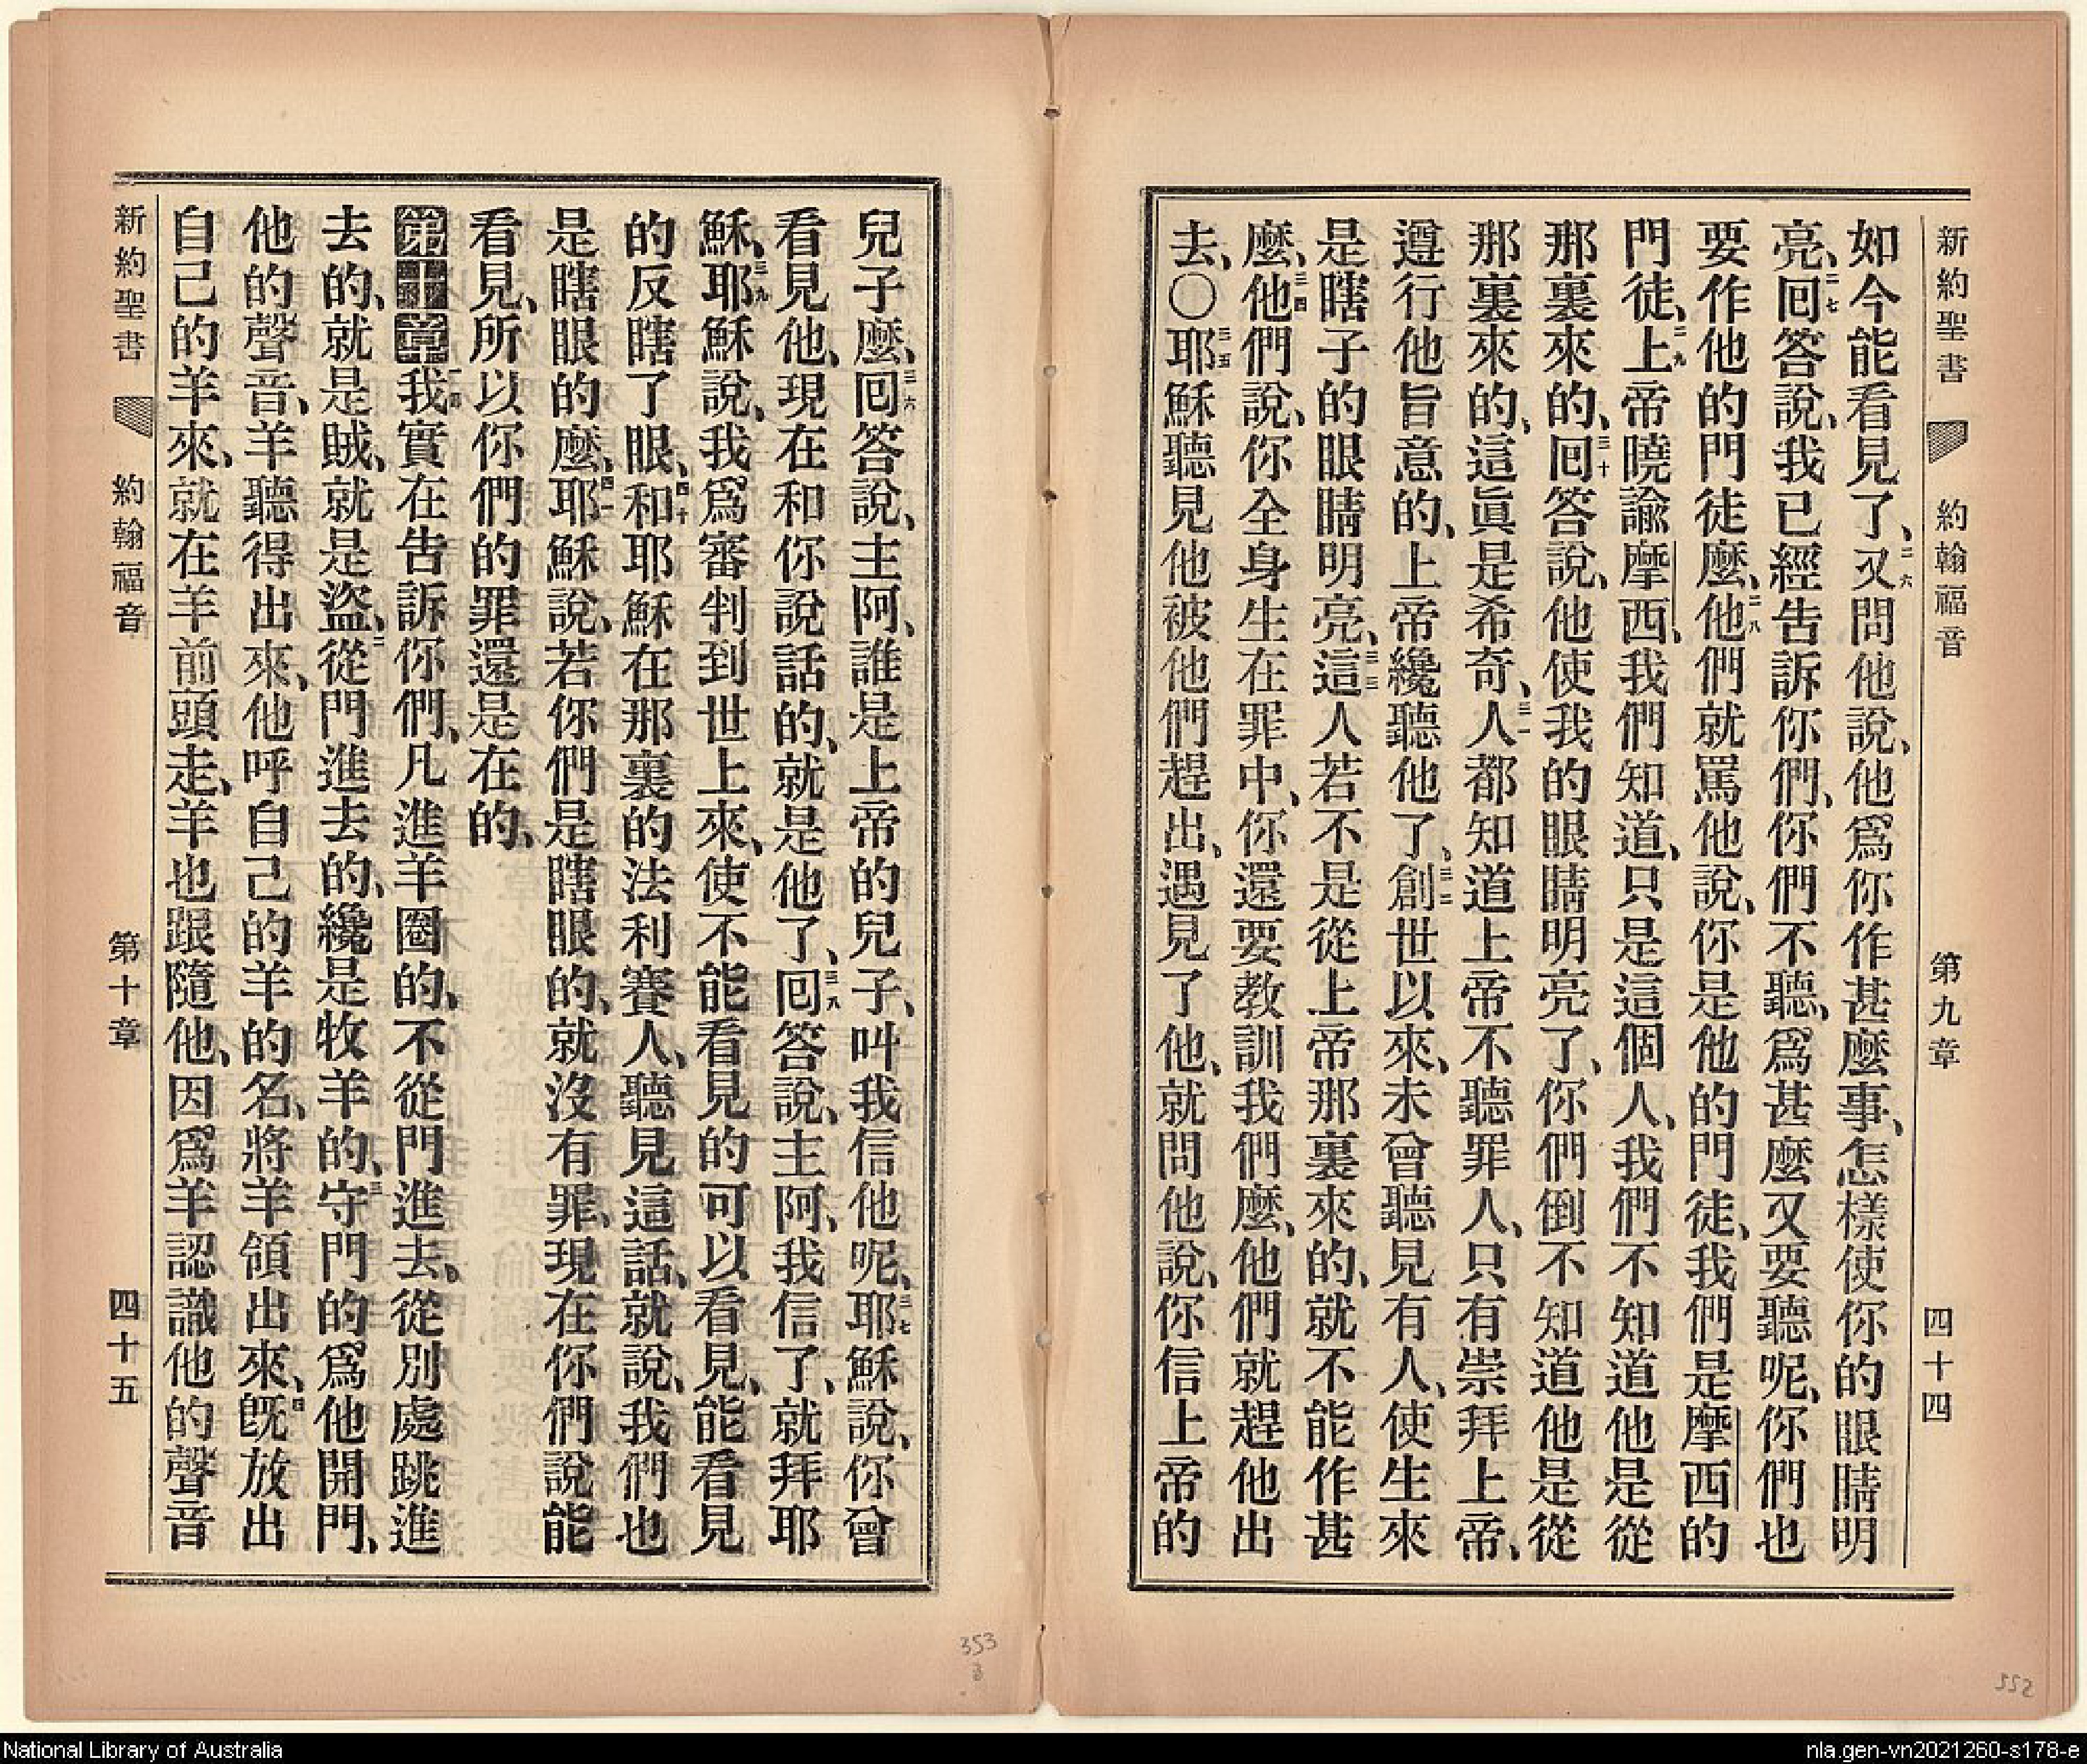 新約聖書 約翰福音 第九章 四十四
如今能看見了、二六又問他說、他爲你作甚麼事、怎樣使你的眼睛明
亮、二七回答說、我已經告訴你們、你們不聽、爲甚麼又要聽呢、你們也
要作他的門徒麼、二八他們就罵他說、你是他的門徒、我們是摩西的
門徒、二九上帝曉諭摩西、我們知道、只是這個人、我們不知道他是從
那裏來的、三十回答說、他使我的眼睛明亮了、你們倒不知道他是從
那裏來的、這眞是希奇、三一人都知道上帝不聽罪人、只有崇拜上帝、
遵行他旨意的、上帝纔聽他了、三二創世以來、未曾聽見有人、使生來
是瞎子的眼睛明亮、三三這人若不是從上帝那裏來的、就不能作甚
麼、三四他們說、你全身生在罪中、你還要教訓我們麼、他們就趕他出
去、〇三五耶穌聽見他被他們趕出、遇見了他、就問他說、你信上帝的
兒子麼、三六回答說、主阿、誰是上帝的兒子、叫我信他呢、三七耶穌說、你曾
看見他、現在和你說話的、就是他了、三八回答說、主阿、我信了、就拜耶
穌、三九耶穌說、我爲審判到世上來、使不能看見的可以看見、能看見
的反瞎了眼、四十和耶穌在那裏的法利賽人、聽見這話、就說、我們也
是瞎眼的麼、四一耶穌說、若你們是瞎眼的、就沒有罪、現在你們說能
看見、所以你們的罪還是在的、
第十章我實在告訴你們、凡進羊圈的、不從門進去、從別處跳進
去的、就是賊、就是盜、二從門進去的、纔是牧羊的、三守門的爲他開門、
他的聲音、羊聽得出來、他呼自己的羊的名、將羊領出來、四旣放出
自己的羊來、就在羊前頭走、羊也跟隨他、因爲羊認識他的聲音
新約聖書 約翰福音 第十章 四十五
353
3
352
National Library of Australia
nla.gen-vn2021260-s178-e